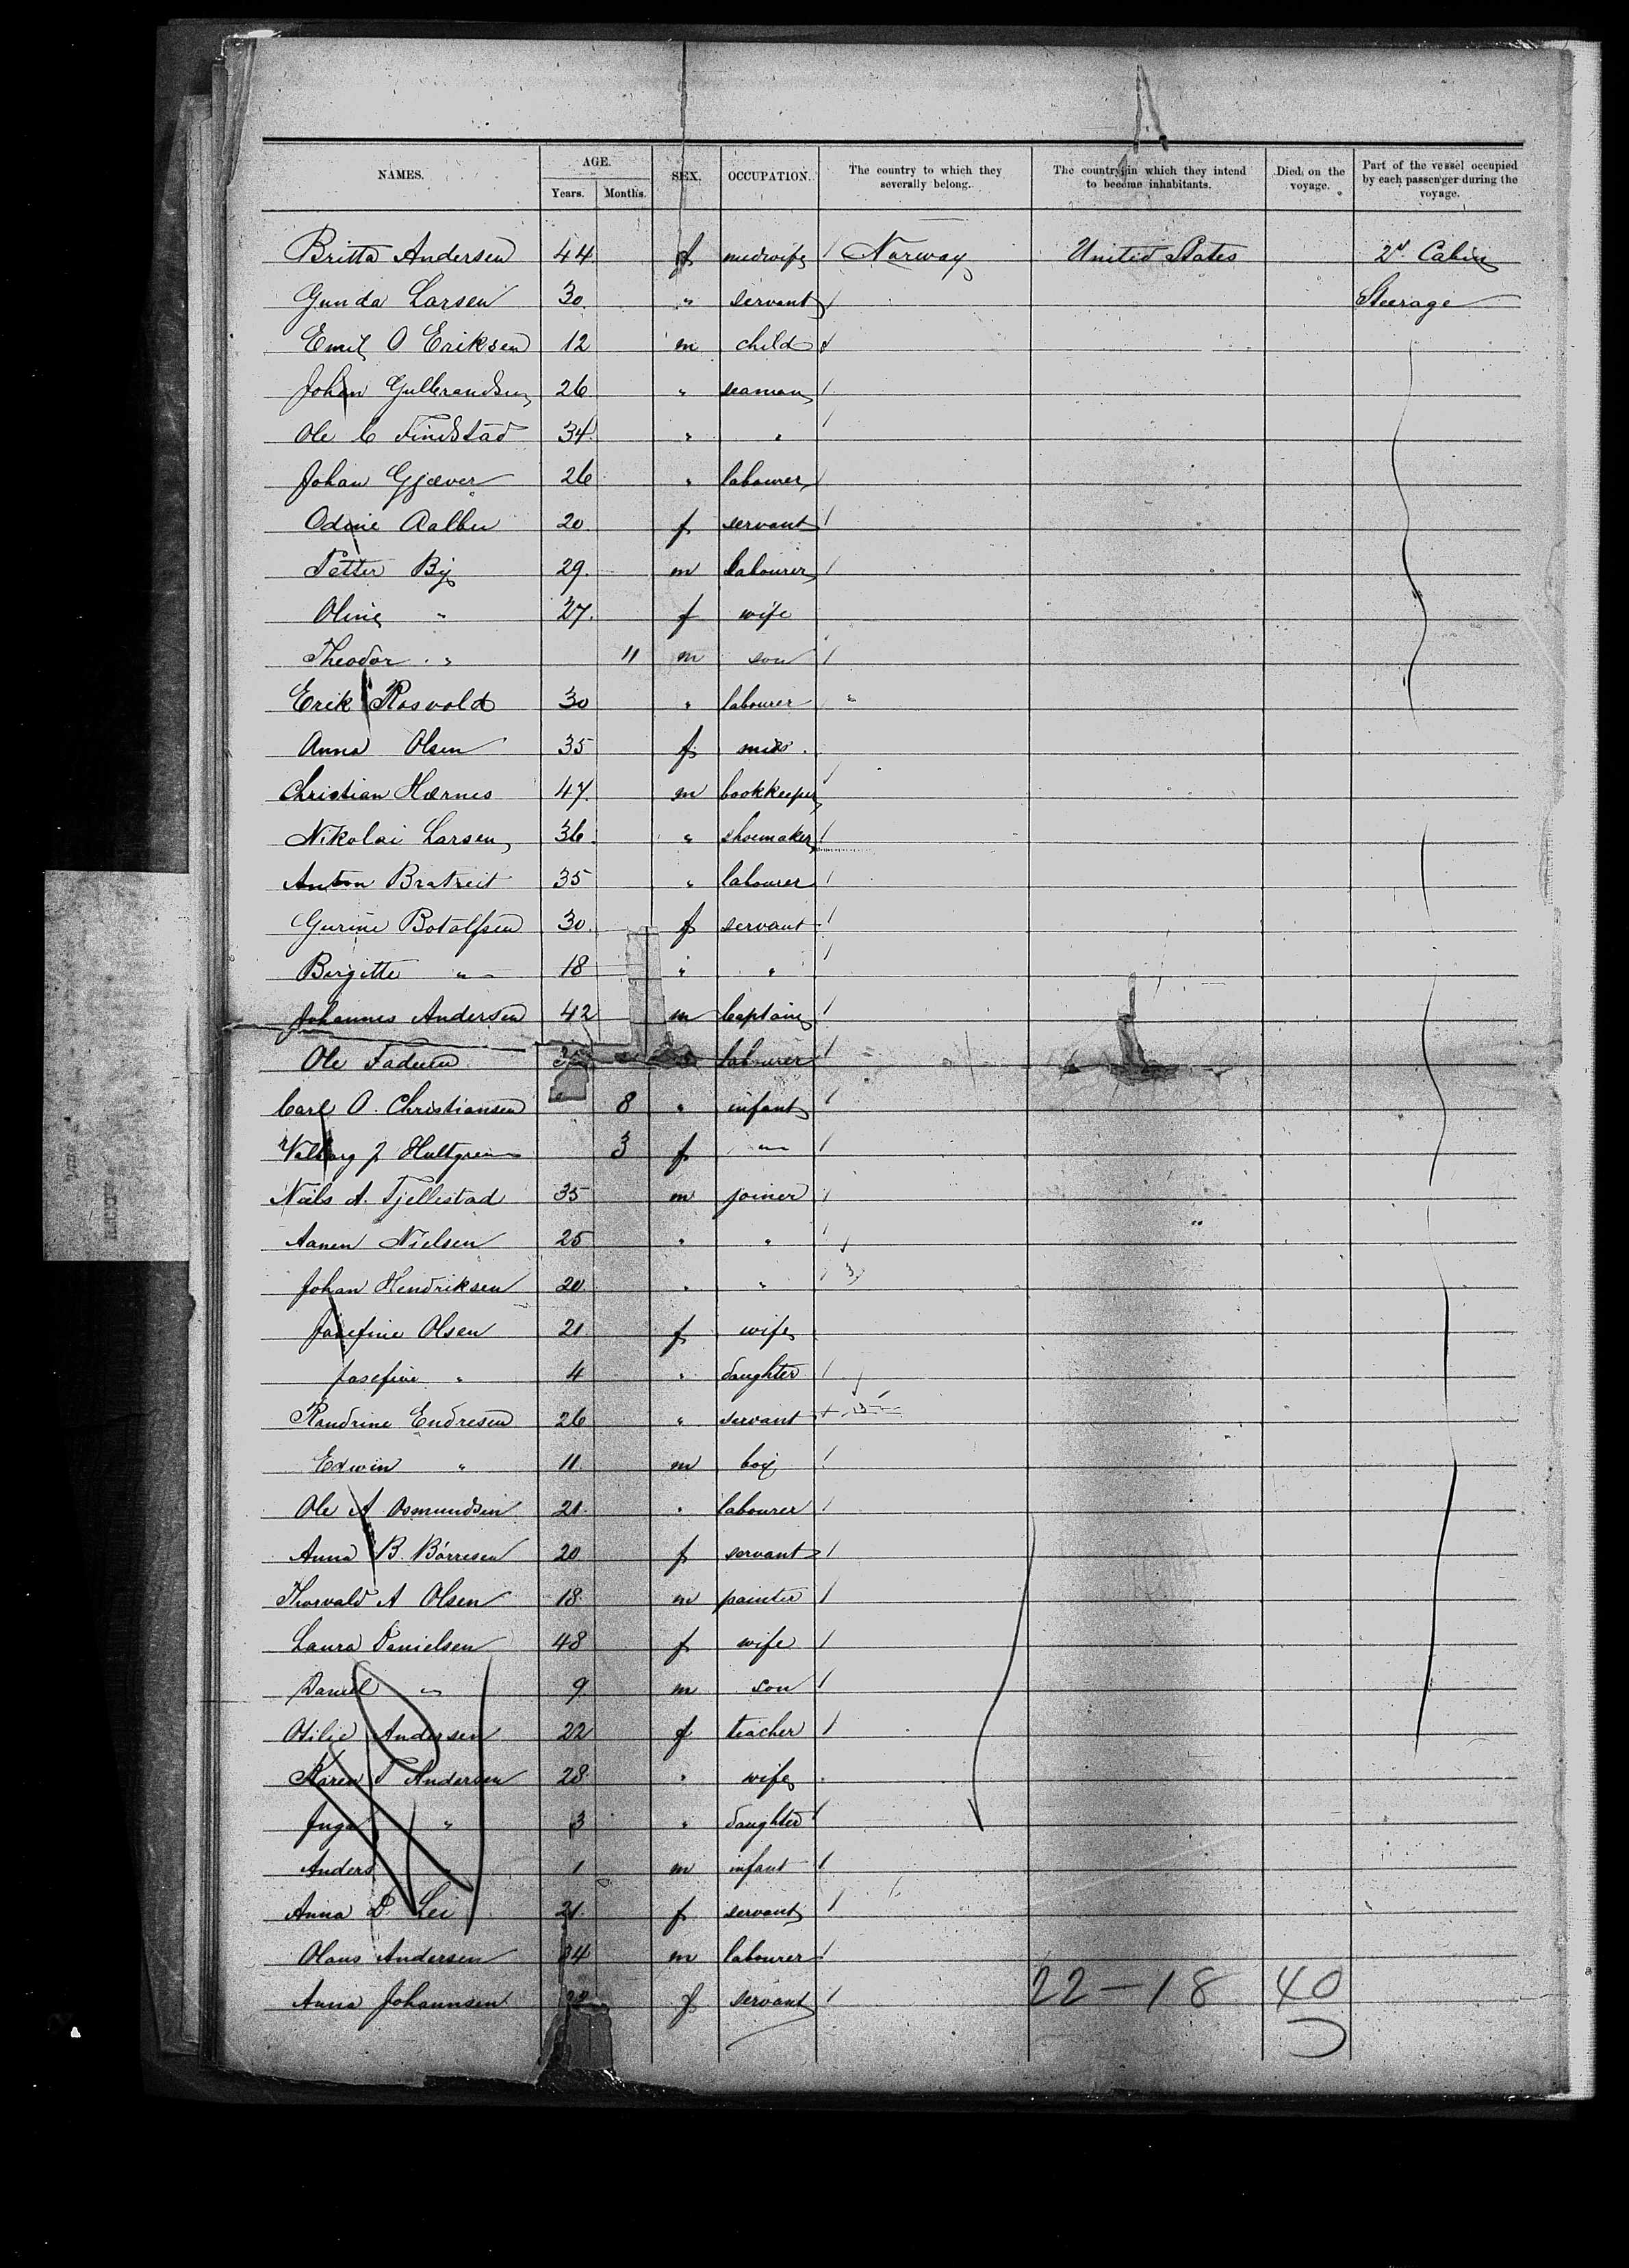 NAMES. AGE. Years. Months. SEX. OCCUPATION. The country to which they severally belong. The country in which they intend to become inhabitants. Died on the voyage. Part of the vessel occupied by each passenger during the voyage.
Britta Andersen 44 f midwife Norway United States 2d Cabin
Gunda Larsen 30. " servant Steerage
Emil O Eriksen 12 m child
Johan Gulbrandsen 26 " seaman
Ole C Findstad 34. " "
Johan Gjæver 26 " labourer
Odine Aalbu 20. f servant
Petter By 29. m labourer
Oline " 27. f wife
Theodor " 11 m son
Erik Rosvold 30 " labourer "
Anna Olsen 35 f miss.
Christian Hærnes 47. m bookkeeper
Nikolai Larsen 36. " shoemaker
Anton Bratreit 35 " labourer
Gurine Botolfsen 30. f servant
Birgitte " 18 " "
Johannes Andersen 42 m Captain
Ole labourer
Carl O. Christiansen 8 " infant
J. Hultgren 3 f "
Niels A. Tjellestad 35 m joiner
Aanen Nielsen 25 " "
Johan Hendriksen 20. " "
Josefine Olsen 21 f wife
Josefine " 4 " daughter
Randrine Endresen 26 " servant
Edwin " 11. m boy
Ole A Osmundsen 21. " labourer
Anna B. Börresen 20 f servant
Thorvald A Olsen 18. m painter
Laura Danielsen 48 f wife
Daniel " 9. m son
Otilie Andersen 22 f teacher
Karen T Andersen 28. " wife
Inga " 3 " daughter
Anders " 1 m infant
Anna D. Lei 21. f servant
Olaus Andersen 34 m labourer
Anna Johannsen f servant
22 – 18 40